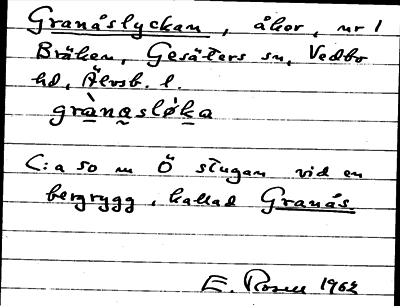 Granåslyckan, åker, nr 1
Bräken, Gesäters sn, Vedbo
hd, Älvsb. l.
grànasløka
C:a 50 m Ö stugan vid en
bergrygg, kallad Granås.
E. Rosell 1962